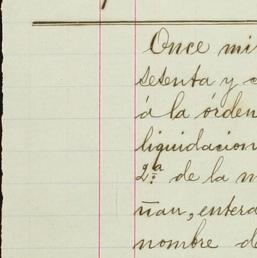 Once mi
setenta y c
á la órden
liquidacion
2ª de la m
ñan, entera
nombre de